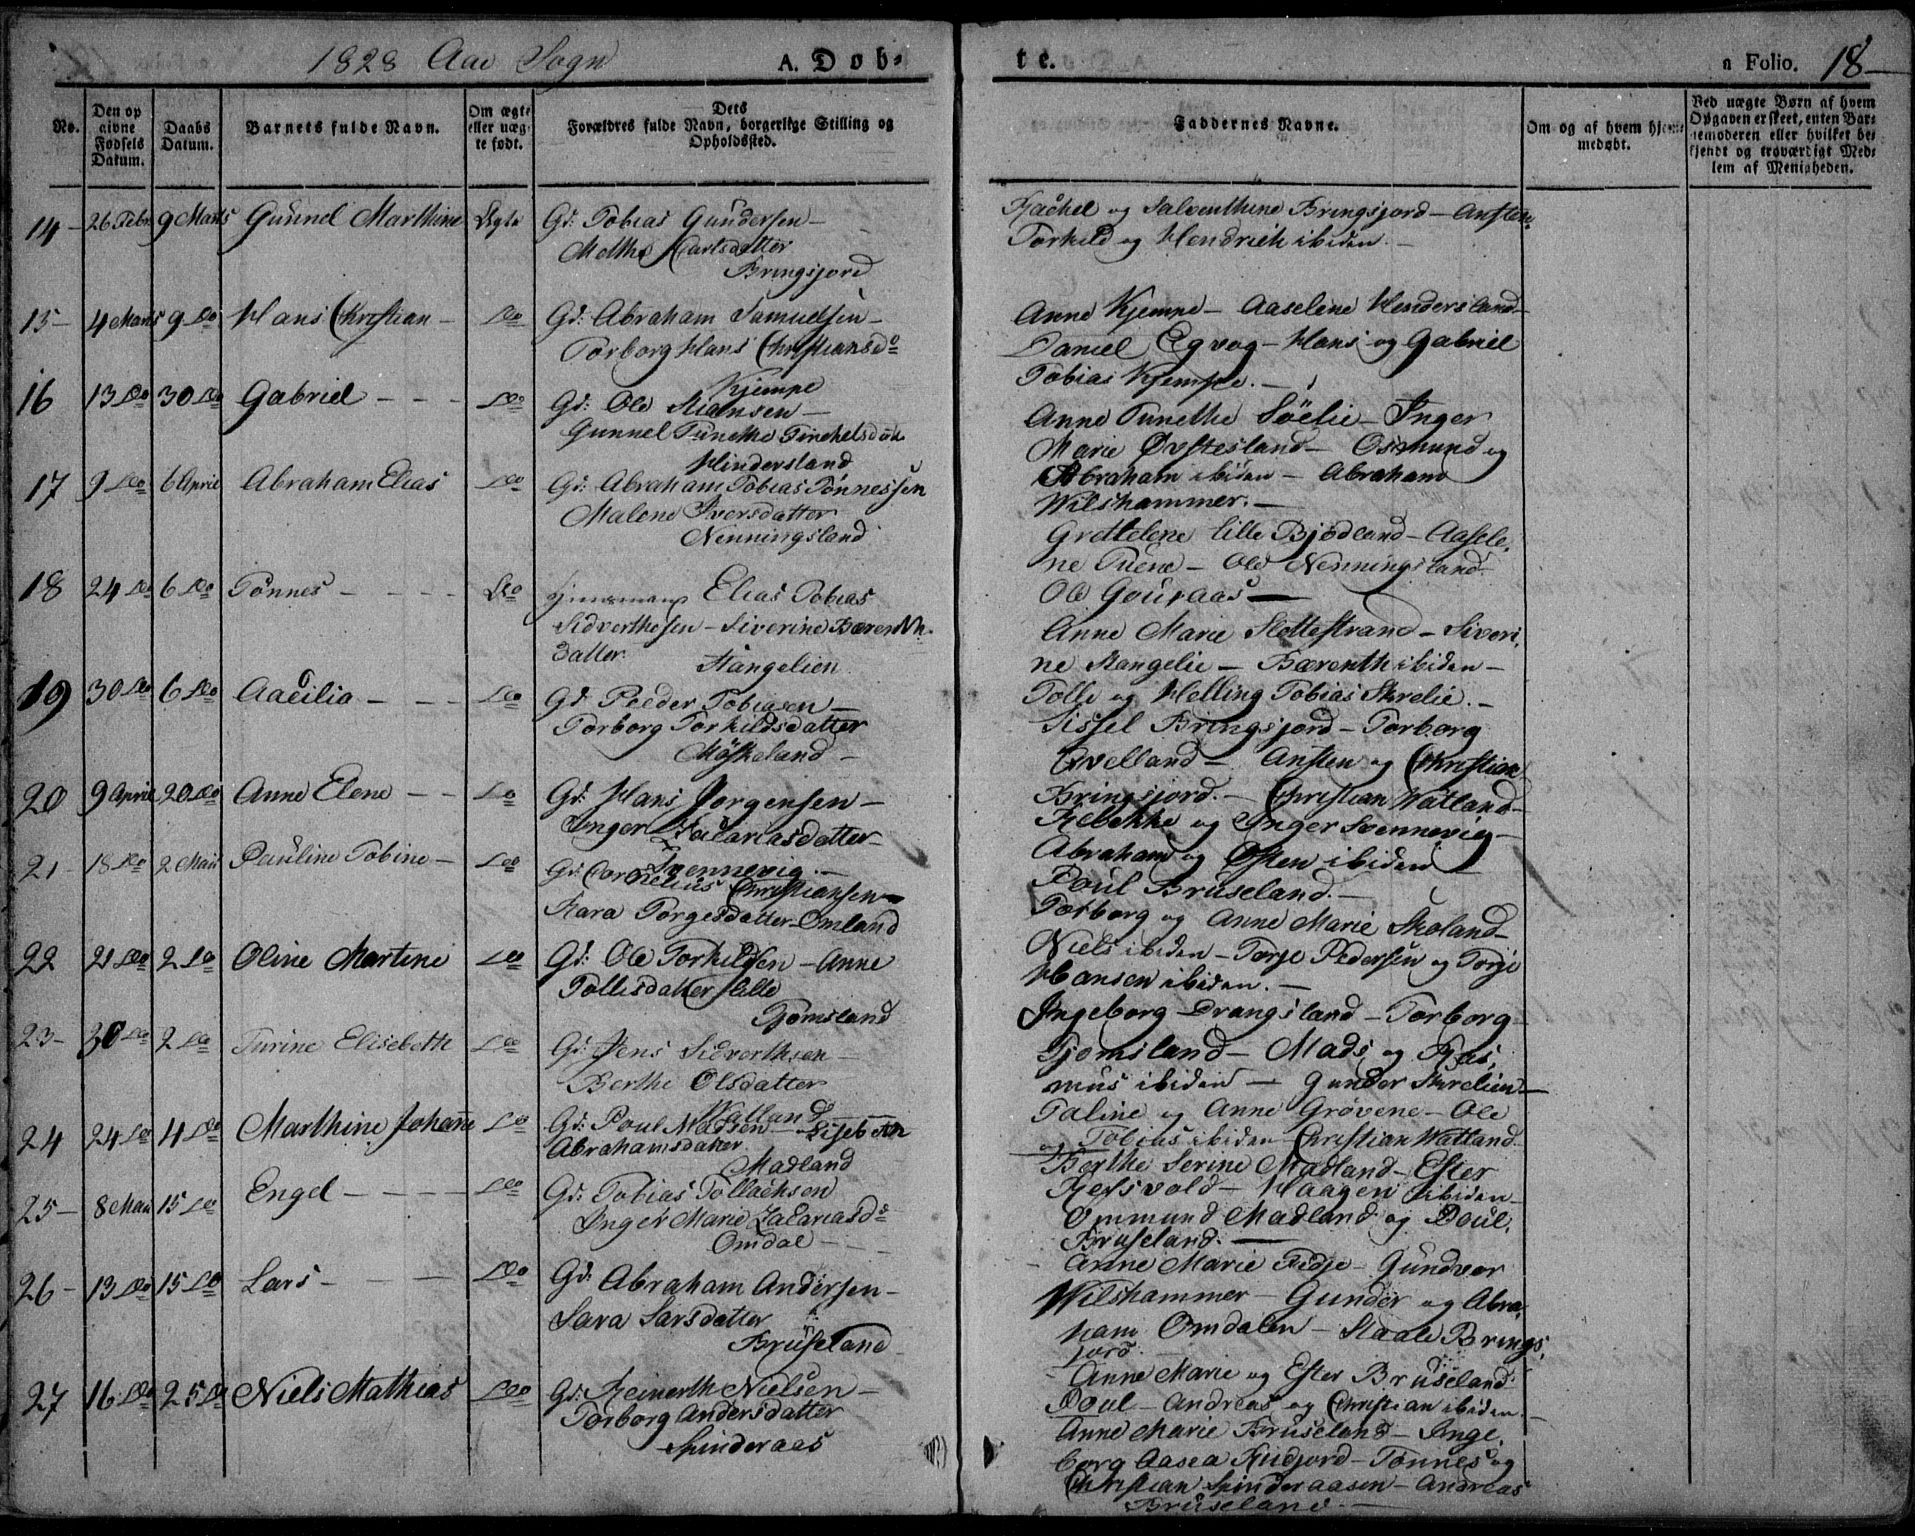 1828 Aae Sogn
A. Døb-
te.
n Folio. 18
No.
Den op
givne
Fødsels
Datum.
Daabs
Datum.
Barnets fulde Navn.
Om ægte
eller uæg-
te født.
Dets
Forældres fulde Navn, borgerlige Stilling og
Opholdssted.
Faddernes Navne.
Om og af hvem hjem-
medøbt.
Ved uægte Børn af hvem
Opgaven er skeet, enten Bar-
nemoderen eller hvilket be-
kjendt og troværdigt Med-
lem af Menigheden.
14 26 Febr 9 Marts Gunnel Marthine Ægte Gd: Tobias Gundersen
Carlsdatter
Bringsjord
Rachel og Salventhine Bringsjord - Ansten
Torkild og Hendrich ibiden.
15 4 Marts 9 Do Hans Christian Do Gd: Abraham Samuelsen
Torborg Hans Christiansd:
Kjempe
Anne Kjempe - Aaselene Hendersland
Daniel Egvog - Hans og Gabriel
Tobias Kjempe.
16 13 Do 30 Do Gabriel Do Gd: Ole
Gunnel Tunethe
Hindersland
Anne Tunethe Söelie - Inger
Marie Øvstesland - Osmund og
Abraham ibiden - Abraham
Wilshammer.
17 9 Do 6 April Abraham Elias Do Gd: Abraham Tobias Tönnessen
Malene Iversdatter
Nenningsland
Grethelene lille Bjödland - Aasele,
ne - Ole Nenningsland
Ole
18 24 Do 6 Do Tönnes Do Elias Tobias
Sidverthsen - Siverine Bærenth
datter. Stangelien
Anne Marie Slottestrand - Siveri,
ne Stangelie - Bærenth ibiden -
Tolle og Helling Tobias Skrelie.
19 30 Do 6 Do Aacilia Do Gd: Peeder Tobiasen
Torborg Torkildsdatter
Möskeland
Sissel Bringsjord - Torborg
Qvelland - Ansten og Christian
Bringsjord. - Christian Watland
20 9 April 20 Do Anne Elene Do Gd: Hans Jorgensen
Inger Zacariasdatter
Svennevig
Rebekke og Inger Svennevig
Abraham og Østen ibiden
Poul Bruseland.
21 18 Do 2 Maii Pauline Tobine Do Gd: Cornelius Christiansen
Zara Torgesdatter Omland
Torborg og Anne Marie Skoland
Niels ibiden - Torje Pedersen og Torje
Hansen ibiden.
22 21 Do 2 Do Oline Martine Do Gd: Ole Torkildsen - Anne
Tollisdatter lille
Tjomsland
Ingeborg Drangsland - Torborg
Tjomsland - Mads og Ras,
mus ibiden - Gunder Skrelien
23 30 Do 2 Do Turine Elisebeth Do Gd: Jens Sidverthsen
Berthe Olsdatter
Watland
Taline og Anne Grövene - Ole
og Tobias ibiden Christian Watland.
24 24 Do 4 Do Marthine Johanne Do Gd: Poul Madsen - Lisebeth
Abrahamsdatter
Madland
Berthe Serine Madland - Ester
Refsvold - Haagen ibiden
Ommund Madland og Poul,
Bruseland.
25 8 Maii 15 Do Engel Do Gd: Tobias Tollachsen
Inger Marie Zacariasd:
Omdal
Anne Marie Fidje - Gundvor
Wilshammer - Gunder og Abra,
ham Omdalen - Staale Brings,
jord.
26 13 Do 15 Do Lars Do Gd: Abraham Andersen
Sara Larsdatter
Bruseland
Anne Marie og Ester Bruseland
Poul - Andreas og Christian ibiden.
27 16 Do 25 Do Niels Mathias Do Gd: Reinerth Nielsen
Torborg Andersdatter
Spinderaas
Anne Marie Bruseland - Inge,
borg Aasea - Tönnes og
Christian Spinderaasen - Andreas
Bruseland